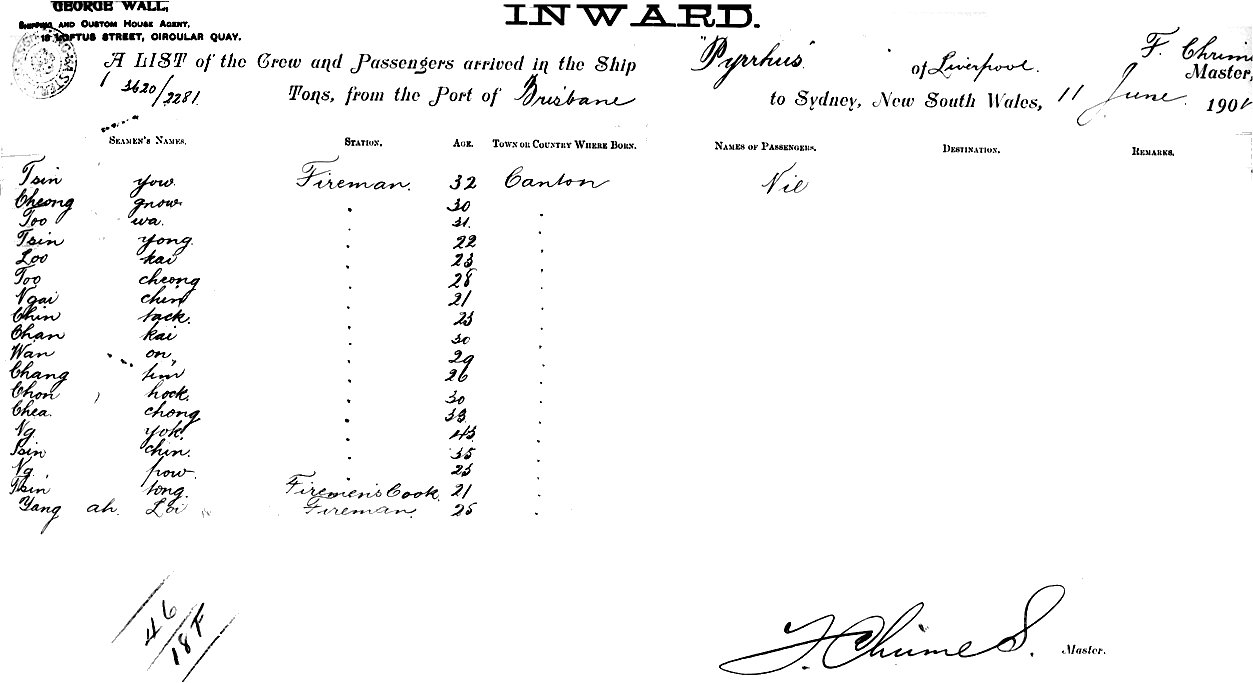 GEORGE WALL,
INWARD.
SHIPPING AND CUSTOM HOUSE AGENT,
LOFTUS STREET, CIRCULAR QUAY.
A LIST of the Crew and Passengers arrived in the Ship "Pyrrhus" of Liverpool. F. Chrim Master,
3620/2281 Tons, from the Port of Brisbane to Sydney, New South Wales, 11 June 190
SEAMEN'S NAMES. STATION. AGE. TOWN OR COUNTRY WHERE BORN. NAMES OF PASSENGERS. DESTINATION. REMARKS.
Tsin you. Fireman. 32 Canton Nil
Cheong gnow 30
Too wa. 31
Tsin yong. 22
Loo kai 23
Too cheong 28
Ngai chin 21
Chin tack. 23
Chan kai 30
Wan on, 29
Chang tim 26
Chon hock. 30
Chea. chong 33
Ng yok. 43
Tsin chin. 35
Ng. pow. 23
Tsin tong. Firemen's Cook. 21
Yang ah. Loi Fireman. 25
46
18 F
F. Chrimes. Master.